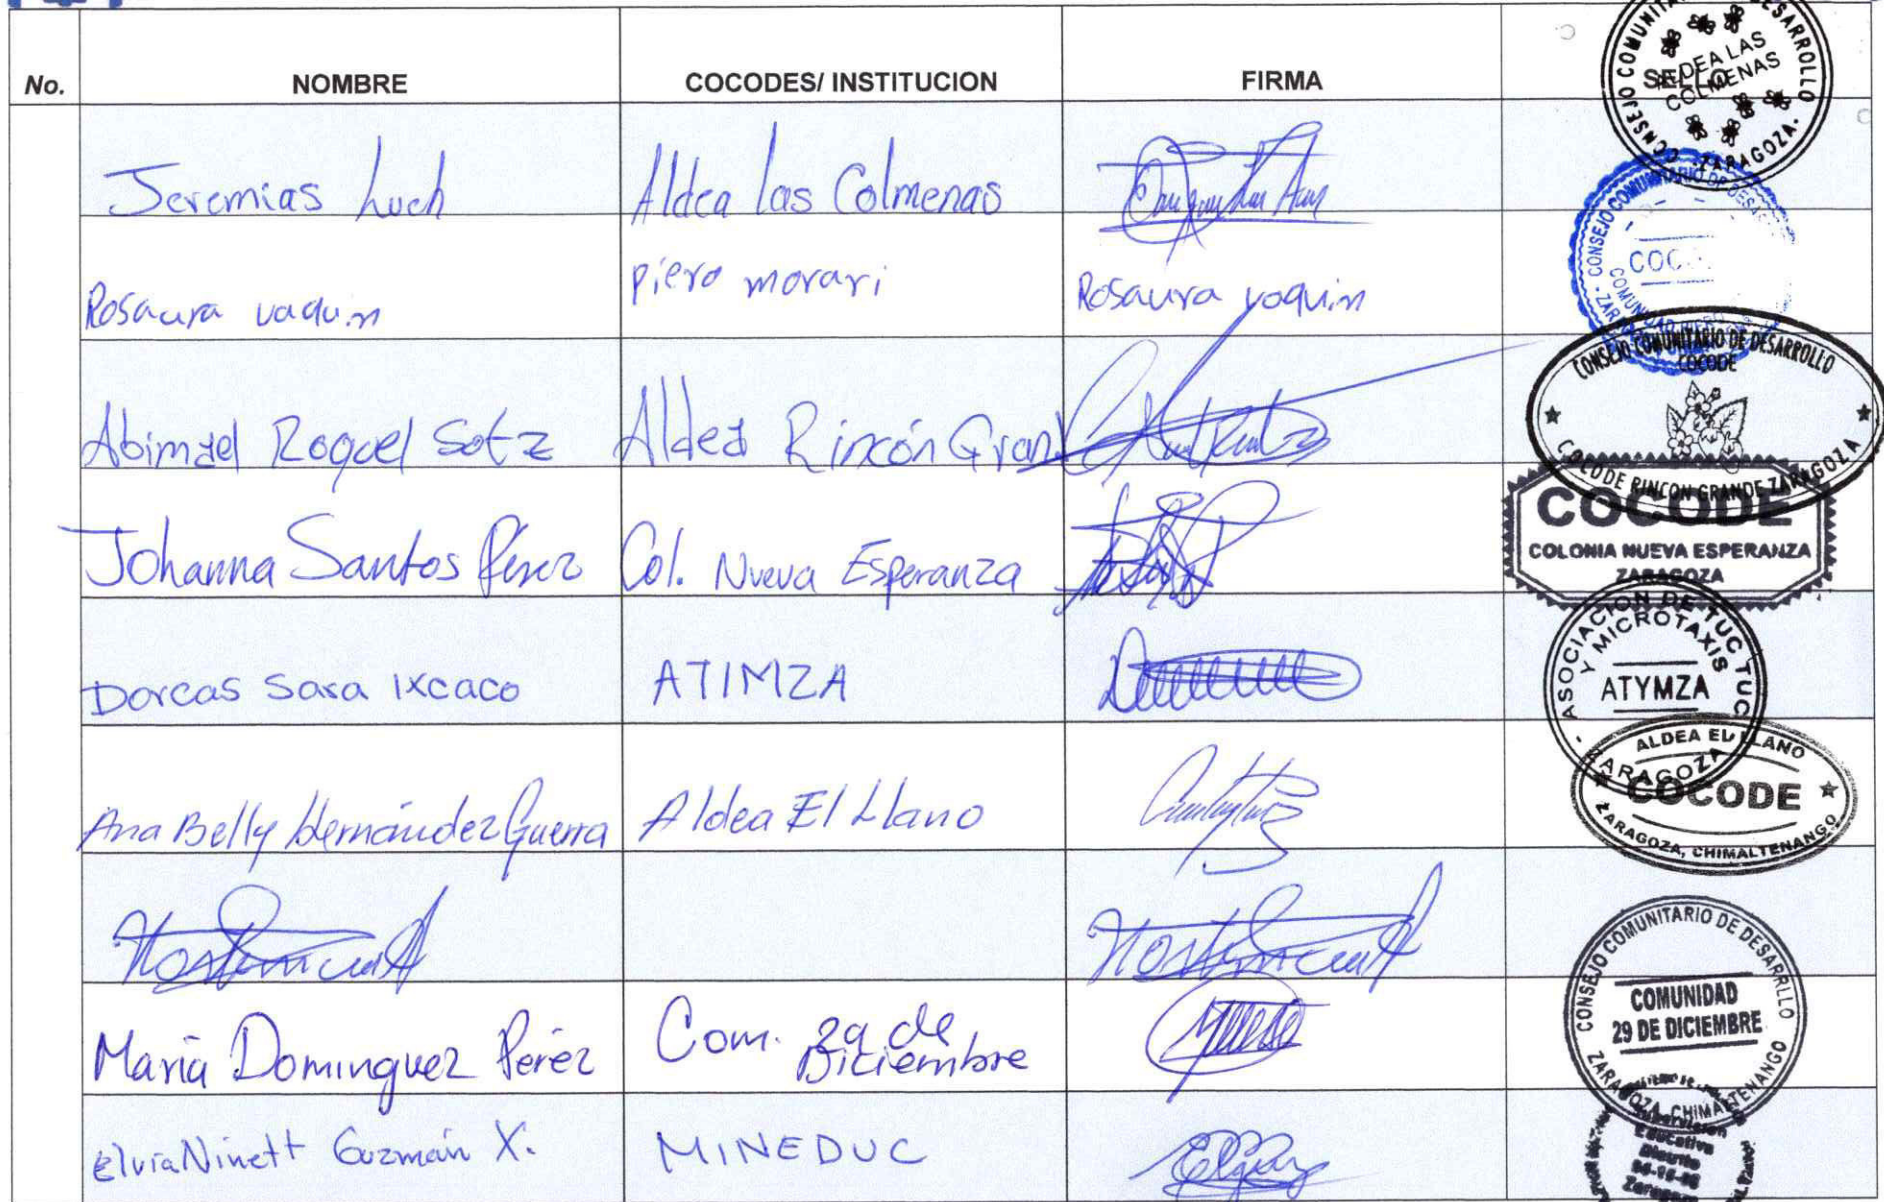 No. NOMBRE COCODES/ INSTITUCION FIRMA SELLO
Jeremias Luch Aldea las Colmenas
CONSEJO COMUNITARIO DE DESARROLLO
ALDEA LAS
COLMENAS
ZARAGOZA.
Rosaura vaquin piero morari Rosaura yoquin
CONSEJO COMUNITARIO DE DESA
COC
COMUNIDAD PIERO
Abimael Roquel Sotz Aldea Rincón Gran
CONSEJO COMUNITARIO DE DESARROLLO
COCODE
COCODE RINCON GRANDE ZARAGOZA
Johanna Santos Pérez Col. Nueva Esperanza
COCODE
COLONIA NUEVA ESPERANZA
ZARAGOZA
Dorcas Sara Ixcaco ATIMZA
ASOCIACION DE TUC TUC
Y MICROTAXIS
ATYMZA
ZARAGOZA
Ana Belly Hernández Guerra Aldea El Llano
ALDEA EL LLANO
COCODE
ZARAGOZA, CHIMALTENANGO
María Dominguez Pérez Com. 29 de
Diciembre
CONSEJO COMUNITARIO DE DESARRLLO
COMUNIDAD
29 DE DICIEMBRE
ZARAGOZA, CHIMALTENANGO
Elvia Ninett Guzmán X. MINEDUC
Supervision
Educativa
Distrito